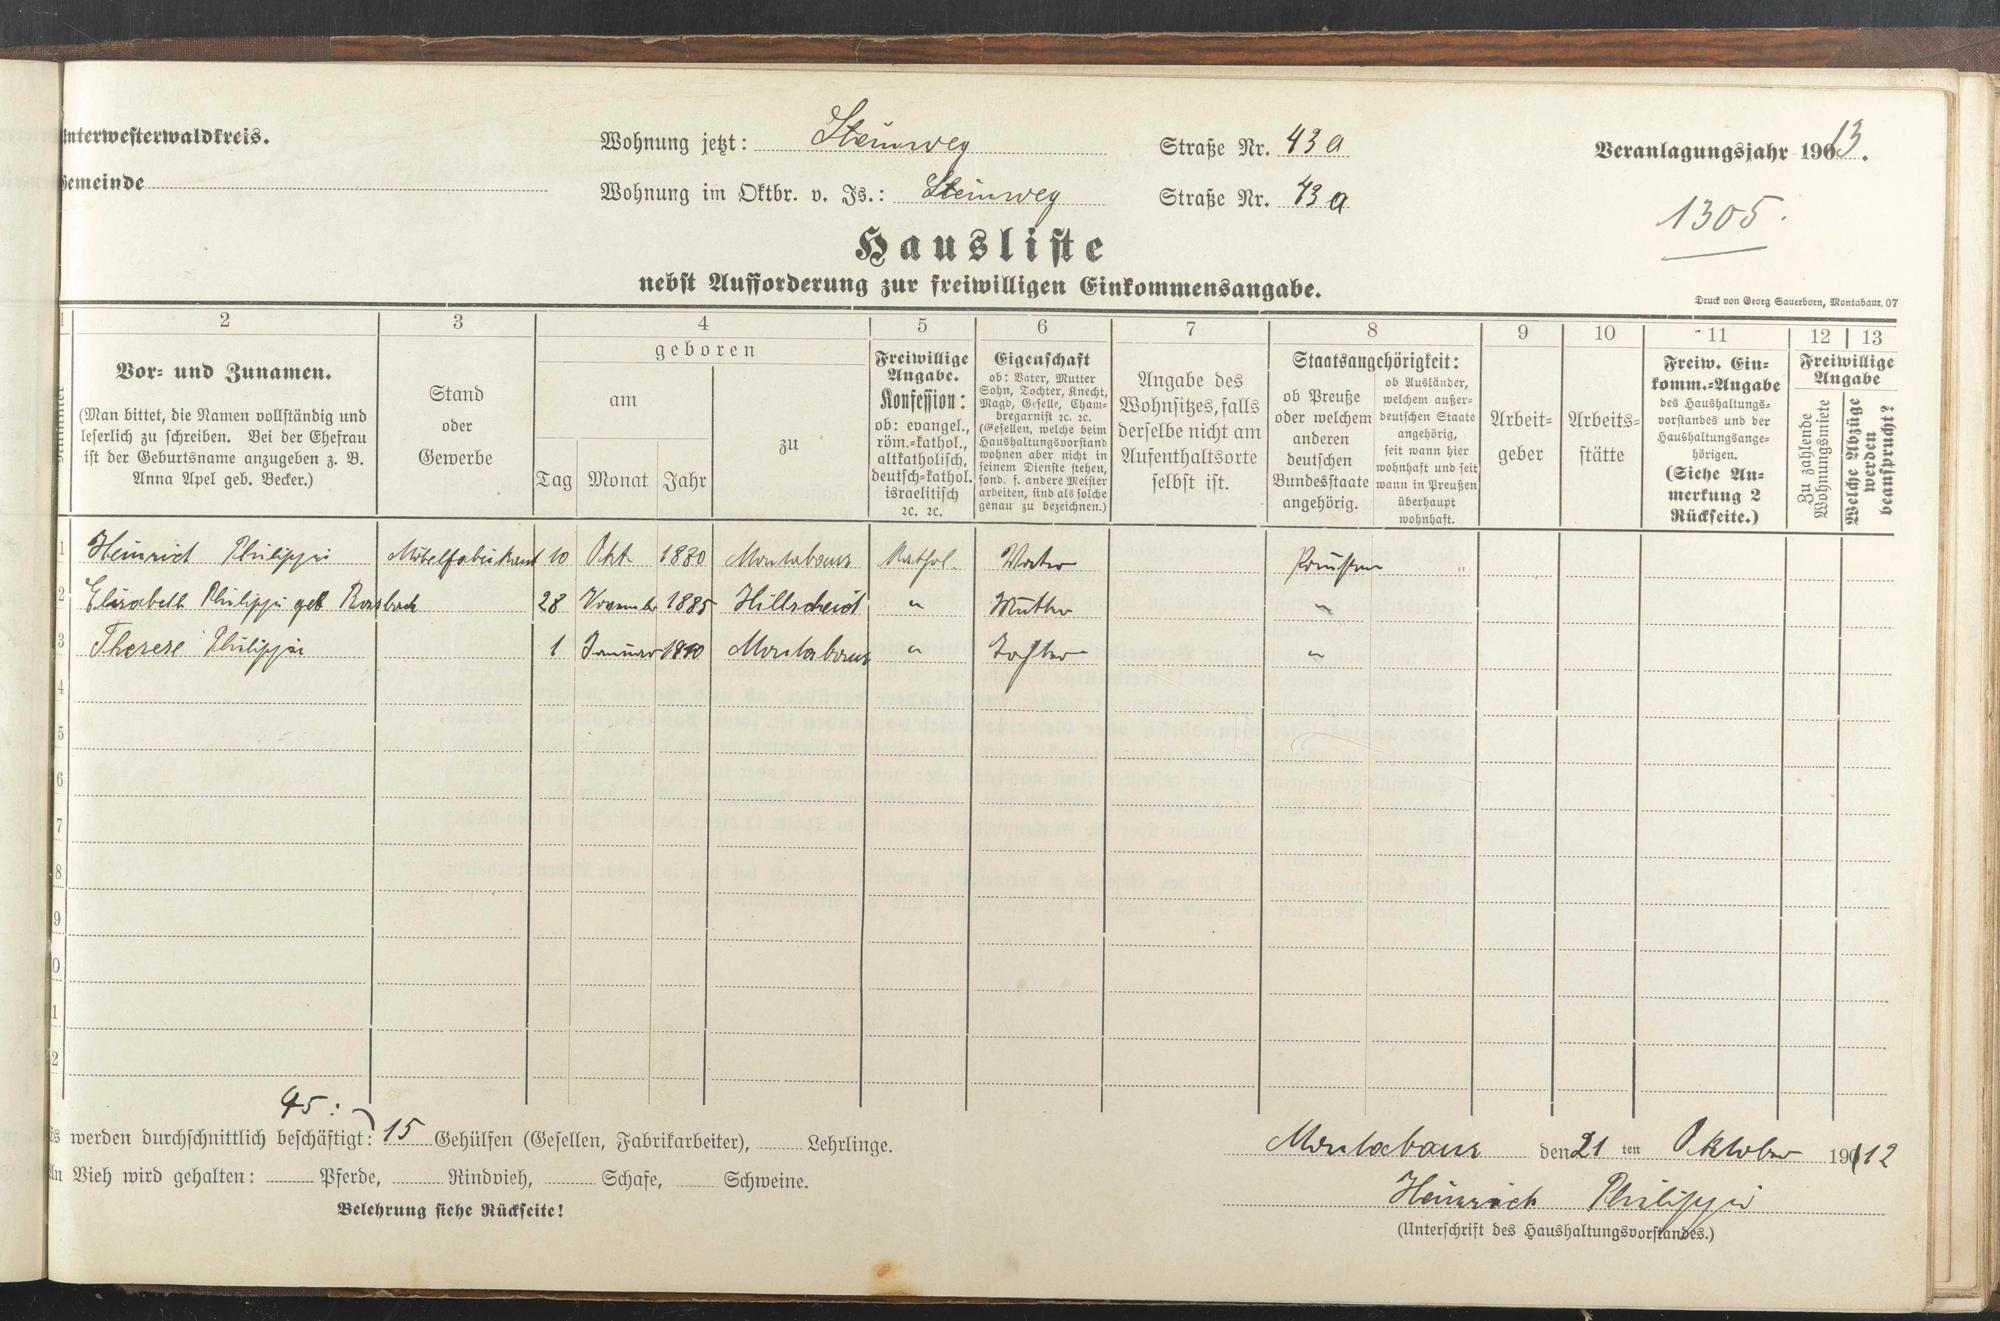 Unterwesterwaldkreis.
Gemeinde
Wohnung jetzt: Steinweg Straße Nr. 43a
Wohnung im Oktbr. v. Js.: Steinweg Straße Nr. 43a
Veranlagungsjahr 1913.
1305.
Hausliste
nebst Aufforderung zur freiwilligen Einkommensangabe.
Druck von Georg Sauerborn, Montabaur. 07
1 2 3 4 5 6 7 8 9 10 11 12 13
Nummer
Vor- und Zunamen.
(Man bittet, die Namen vollständig und
leserlich zu schreiben. Bei der Ehefrau
ist der Geburtsname anzugeben z. B.
Anna Apel geb. Becker.)
Stand
oder
Gewerbe
geboren
am
Tag Monat Jahr
zu
Freiwillige
Angabe.
Konfession:
ob: evangel.,
röm.-kathol.,
altkatholisch,
deutsch-kathol.
israelitisch
ꝛc. ꝛc.
Eigenschaft
ob: Vater, Mutter
Sohn, Tochter, Knecht,
Magd, Geselle, Cham-
bregarnist ꝛc. ꝛc.
(Gesellen, welche beim
Haushaltungsvorstand
wohnen aber nicht in
seinem Dienste stehen,
sond. f. andere Meister
arbeiten, sind als solche
genau zu bezeichnen.)
Angabe des
Wohnsitzes, falls
derselbe nicht am
Aufenthaltsorte
selbst ist.
Staatsangehörigkeit:
ob Preuße
oder welchem
anderen
deutschen
Bundesstaate
angehörig.
ob Ausländer,
welchem außer-
deutschen Staate
angehörig,
seit wann hier
wohnhaft und seit
wann in Preußen
überhaupt
wohnhaft.
Arbeit-
geber
Arbeits-
stätte
Freiw. Ein-
komm.-Angabe
des Haushaltungs-
vorstandes und der
Haushaltungsange-
hörigen.
(Siehe An-
merkung 2
Rückseite.)
Freiwillige
Angabe
Zu zahlende
Wohnungsmiete
Welche Abzüge
werden
beansprucht?
1 Heinrich Philippi Möbelfabrikant 10 Okt. 1880 Montabaur Kathol. Vater Preußen "
2 Elisabeth Philippi geb Rosbach 28 November 1885 Hillscheid " Mutter "
3 Therese Philippi 1 Januar 1910 Montabaur " Tochter "
4
5
6
7
8
9
10
11
12
95:
Es werden durchschnittlich beschäftigt: 15 Gehülfen (Gesellen, Fabrikarbeiter), Lehrlinge.
An Vieh wird gehalten: Pferde, Rindvieh, Schafe, Schweine.
Belehrung siehe Rückseite!
Montabaur den 21 ten Oktober 1912
Heinrich Philippi
(Unterschrift des Haushaltungsvorstandes.)